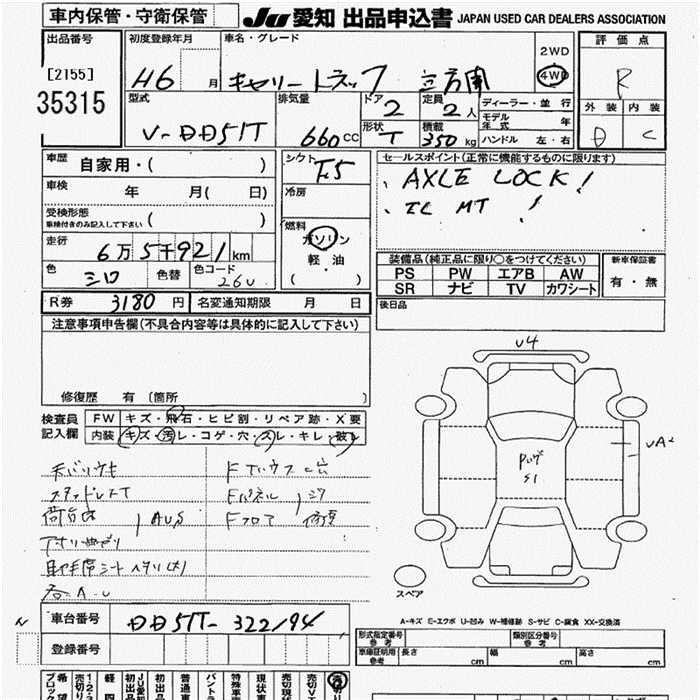 車内保管・守衛保管
JU 愛知 出品申込書 JAPAN USED CAR DEALERS ASSOCIATION
出品番号
[2155]
35315
初度登録年月
H6 月
車名・グレード
キャリートラック
2WD
4WD
評価点
R
外装 内装
D C
型式
V-DD51T
排気量
660 CC
ドア
2
形状
T
定員
2 人
積載
350 kg
ディーラー・並行
モデル年式 年
ハンドル 左・右
車歴
自家用・( )
車検 年 月( 日)
受検形態
車検付きのみ記入して下さい ( )
走行
6万5千921 km
色
シロ
色替
色コード
26U
シフト
F5
冷房
燃料
ガソリン
軽油
( )
セールスポイント(正常に機能するものに限ります)
、AXLE LOCK!
、EL MT !
装備品(純正品に限り○をつけてください)
PS PW エアB AW
SR ナビ TV カワシート
新車保証書
有・無
R券 3180 円
名変通知期限 月 日
後日品
注意事項申告欄(不具合内容等は具体的に記入して下さい)
修復歴 有 〔箇所 〕
検査員
記入欄
FW キズ・飛石・ヒビ割・リペア跡・X要
内装 キズ・汚レ・コゲ・穴・スレ・キレ・破レ
スタッドレスT
Fパネル
Fフロア
A.U.S
U4
UA²
S1
スペア
A-キズ E-エクボ U-凹み W-補修跡 S-サビ C-腐食 XX-交換済
N
車台番号 DD51T-322194
登録番号
型式指定番号
参考
類別区分番号
参考
車庫証明用
参考
長さ cm
幅 cm
高さ cm